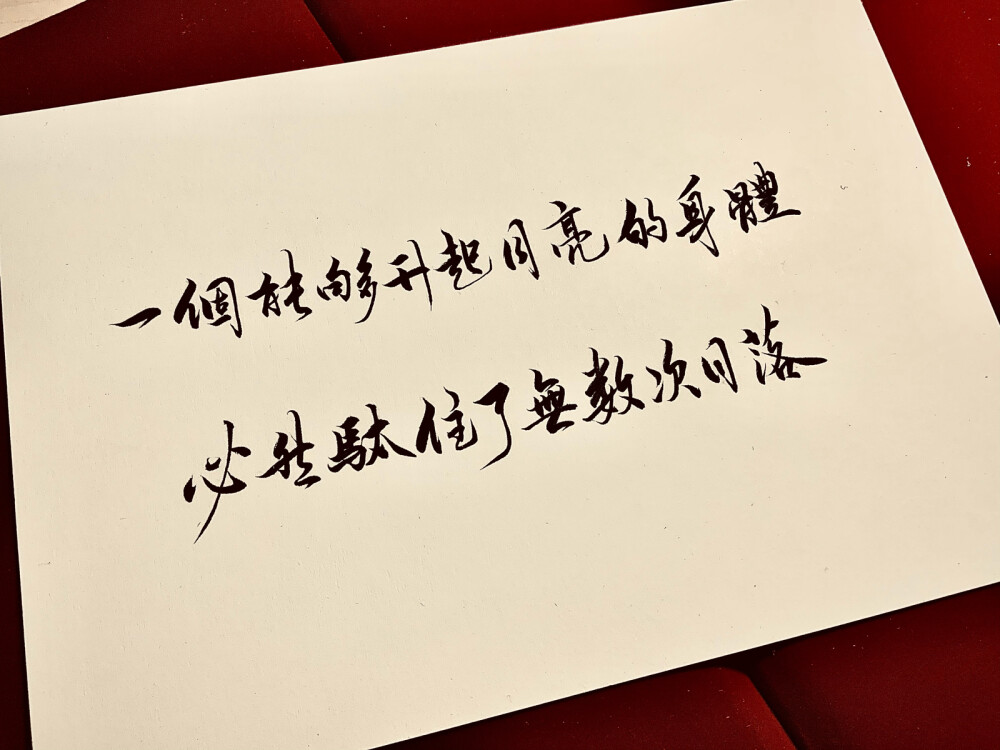 一個能够升起月亮的身體
必然馱住了無数次日落